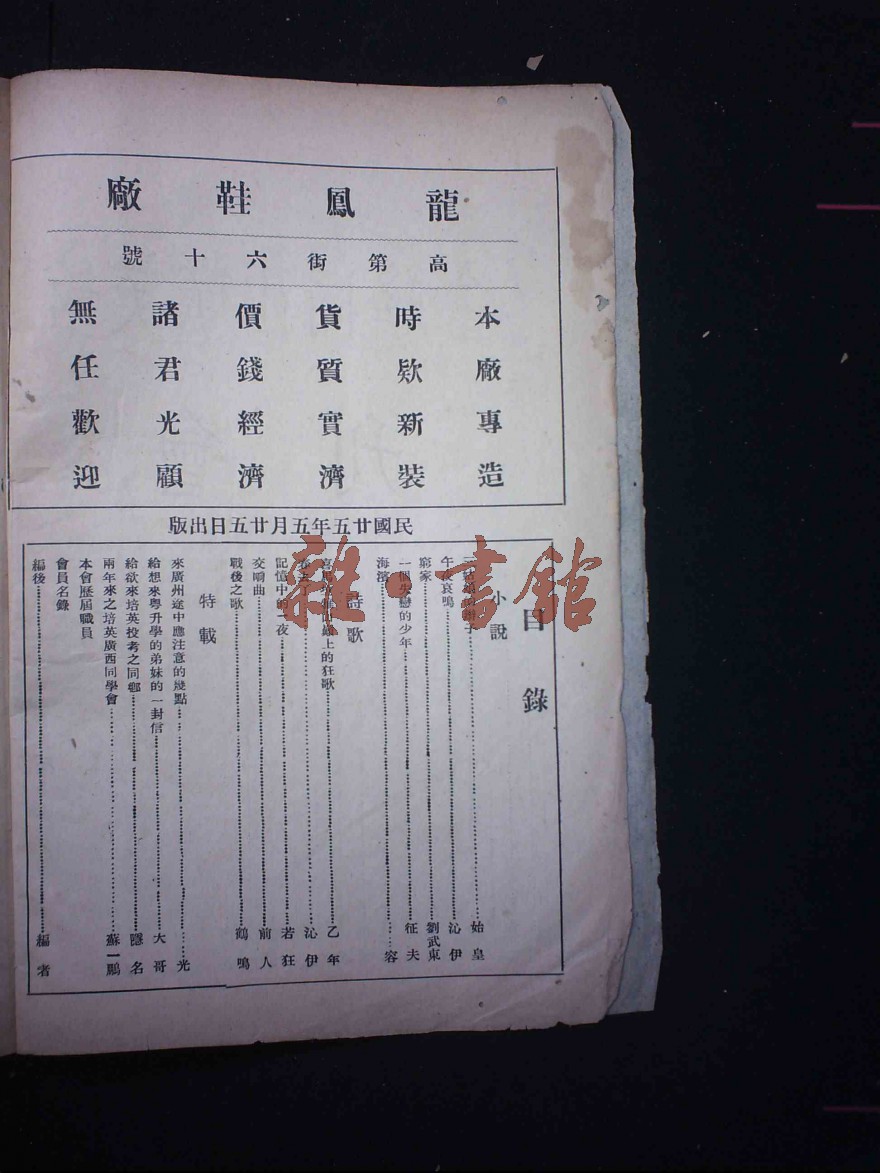 龍鳳鞋廠
高第街六十號
本廠專造
時欵新裝
貨質實濟
價錢經濟
諸君光顧
無任歡迎
民國廿五年五月廿五日出版
目錄
小說
始皇
午夜哀鳴 沁伊
窮家 劉武東
一個失戀的少年 征夫
海濱 容
詩歌
上的狂歌 乙年
沁伊
記憶中的一夜 若狂
交响曲 前人
戰後之歌 鶴鳴
特載
來廣州途中應注意的幾點 光
給想來粵升學的弟妹的一封信 大哥
給欲來培英投考之同鄉 隱名
兩年來之培英廣西同學會 蘇一鵬
本會歷屆職員
會員名錄
編後 編者
雜·書館